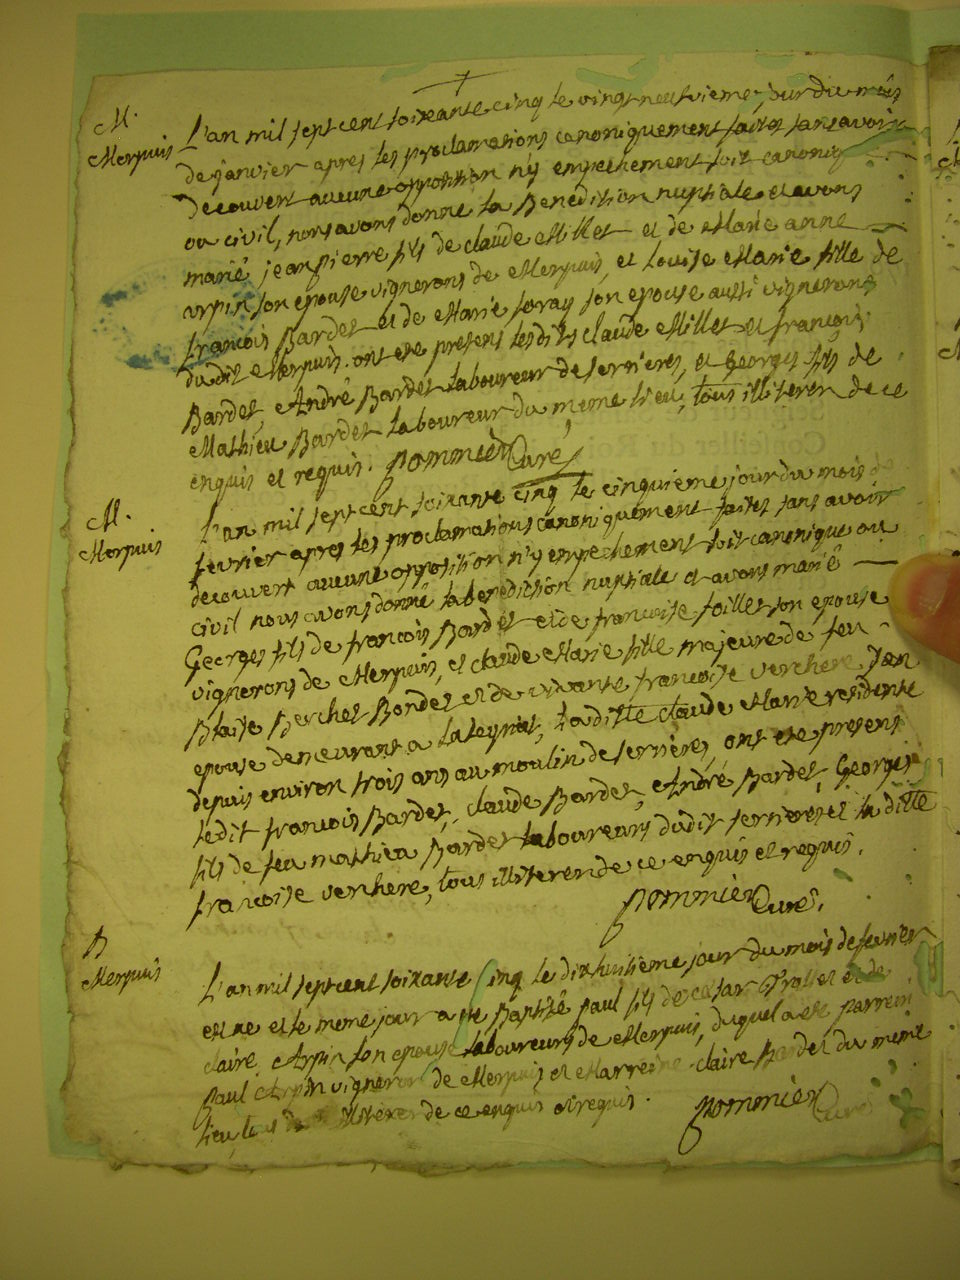 M.
Merpuis
L'an mil sept cent soixante cinq le vingt neufvieme jour du mois
de janvier apres les proclamations canoniquement faites sans avoir
decouvert aucune opposition n'y empechement soit canoniq
ou civil, nous avons donné la Benediction nuptiale et avons
marié jean pierre fils de claude Millet et de Marie anne
arpin son epouse vignerons de Merpuis, et Louise Marie fille de
francois Bardet et de Marie foray son epouse aussi vignerons
dudit Merpuis. ont ete presens lesdits claude Millet et francois
Bardet, André Bardet laboureur de serrieres, et Georges fils de
Mathieu Bardet laboureur du meme lieu, tous illiteres de ce
enquis et requis. pommier Curé
M.
Merpuis
L'an mil sept cent soixante cinq le cinquieme jour du mois de
fevrier apres les proclamations canoniquement faites sans avoir
decouvert aucune opposition n'y empechement soit canonique ou
civil nous avons donné la benediction nuptiale et avons marié
Georges fils de francois Bardet et de francoise foillet son epouse
vignerons de Merpuis, et claude Marie fille majeure de feu
Blaise Berchet Bondet et de vivante francoise verchere son
epouse demeurant a Laleyriat, ladite claude Marie residente
depuis environ trois ans au moulin de serrieres, ont ete presens
ledit francois Bardet, claude Bardet, André Bardet, Georges
fils de feu mathieu Bardet laboureurs dudit serrieres et la ditte
francoise verchere, tous illiteres de ce enquis et requis.
pommier Curé.
B
Merpuis
L'an mil sept cent soixante Cinq le dixhuitieme jour du mois de fevrier
est né et le meme jour a ete Baptisé paul fils de Cesar et de
claire Arpin son epouse laboureurs de Merpuis, duquel a ete parrein
paul Arpin vigneron de Merpuis et Marreine claire Bardet du meme
lieu, tous illiteres de ce enquis et requis. pommier Curé